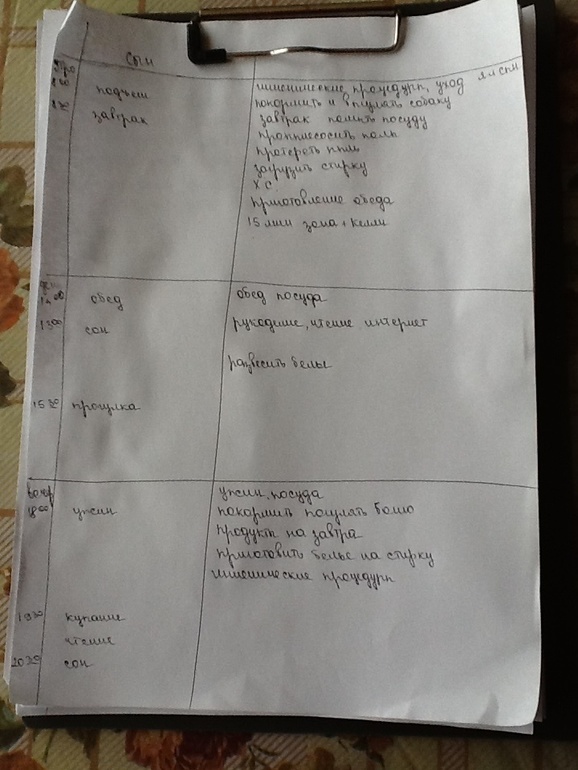 сын
подъем гигиенические процедуры, уход
покормить и выгулять собаку
завтрак завтрак помыть посуду
пропылесосить полы
протереть пыль
загрузить стирку
ХС
приготовление обеда
15 мин зона + келли
день
обед обед посуда
13 00 сон рукоделие, чтение интернет
развесить белье
15 30 прогулка
вечер ужин, посуда
18 00 ужин покормить погулять
продукты на завтра
приготовить белье на стирку
гигиенические процедуры
19 30 купание
чтение
20 30 сон